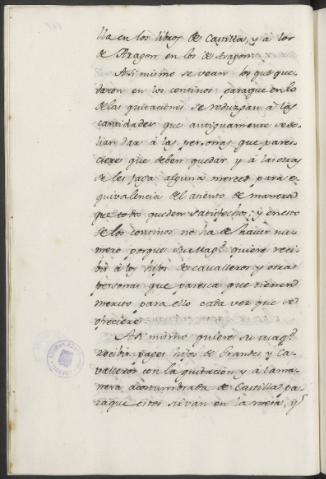 lla en los libros de Castilla, y a los
de Aragon en los de Aragon.
Asi mismo se vean los que que
daron en los continos paraque en lo
de las quitaciones se reduzgan a las
cantidades que antiguamente se so
lian dar à las personas que pares
ciere que deben quedar y a las otras
se les haga alguna merced para e
quivalencia del asiento de manera
que todo queden satisfechos, y en esto
de los continos no ha de haver nu
mero porque su Magd. quiere reci
bir à los hijos de cavalleros y otras
personas que paresca que tienen
meritos para ello cada vez que se
ofreciere
Asi mismo quiere su magd.
reciba pages hijos de Grandes y Ca
valleros con la quitacion y a la ma
nera acostumbrada de Castilla pa
raque estos sirvan en la mesa, qe